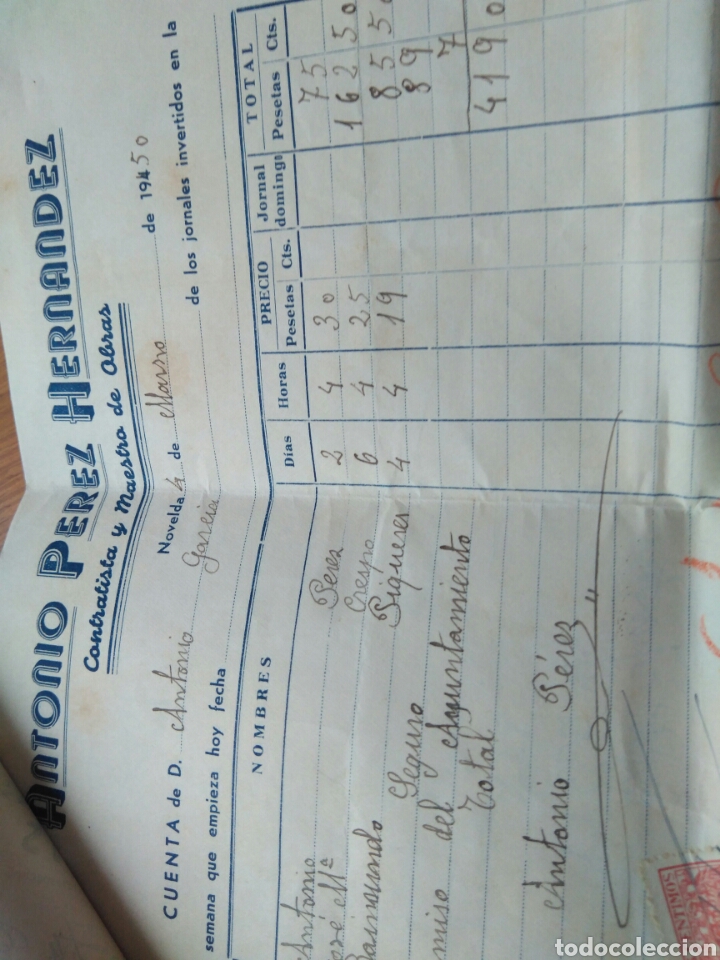 ANTONIO PEREZ HERNANDEZ
Contratista y Maestro de Obras
Novelda 4 de Marso de 19450
CUENTA de D. Antonio Garcia de los jornales invertidos en la
semana que empieza hoy fecha
NOMBRES Días Horas PRECIO Pesetas Cts. Jornal doming TOTAL Pesetas Cts.
Antonio Perez 2 4 30 75
José Mª Crespo 6 4 25 162 50
Raimundo Piqueres 4 4 19 85 50
Seguro 89
miso del Ayuntamiento 7
Total 419 0
Antonio Pérez
CENTIMOS
todocoleccion.net